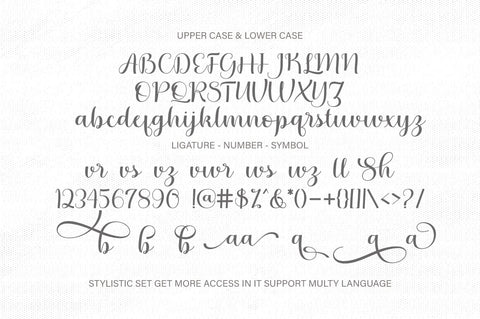 UPPER CASE & LOWER CASE
ABCDEFGHIJKLMN
OPQRSTUVWXYZ
abcdefghijklmnopqrstuvwxyz
LIGATURE - NUMBER - SYMBOL
vr vs vz vwr ws wz ll Sh
1234567890 !@#$%^&*()-+{}[]|\<>?/
b b b aa q q a
STYLISTIC SET GET MORE ACCESS IN IT SUPPORT MULTY LANGUAGE